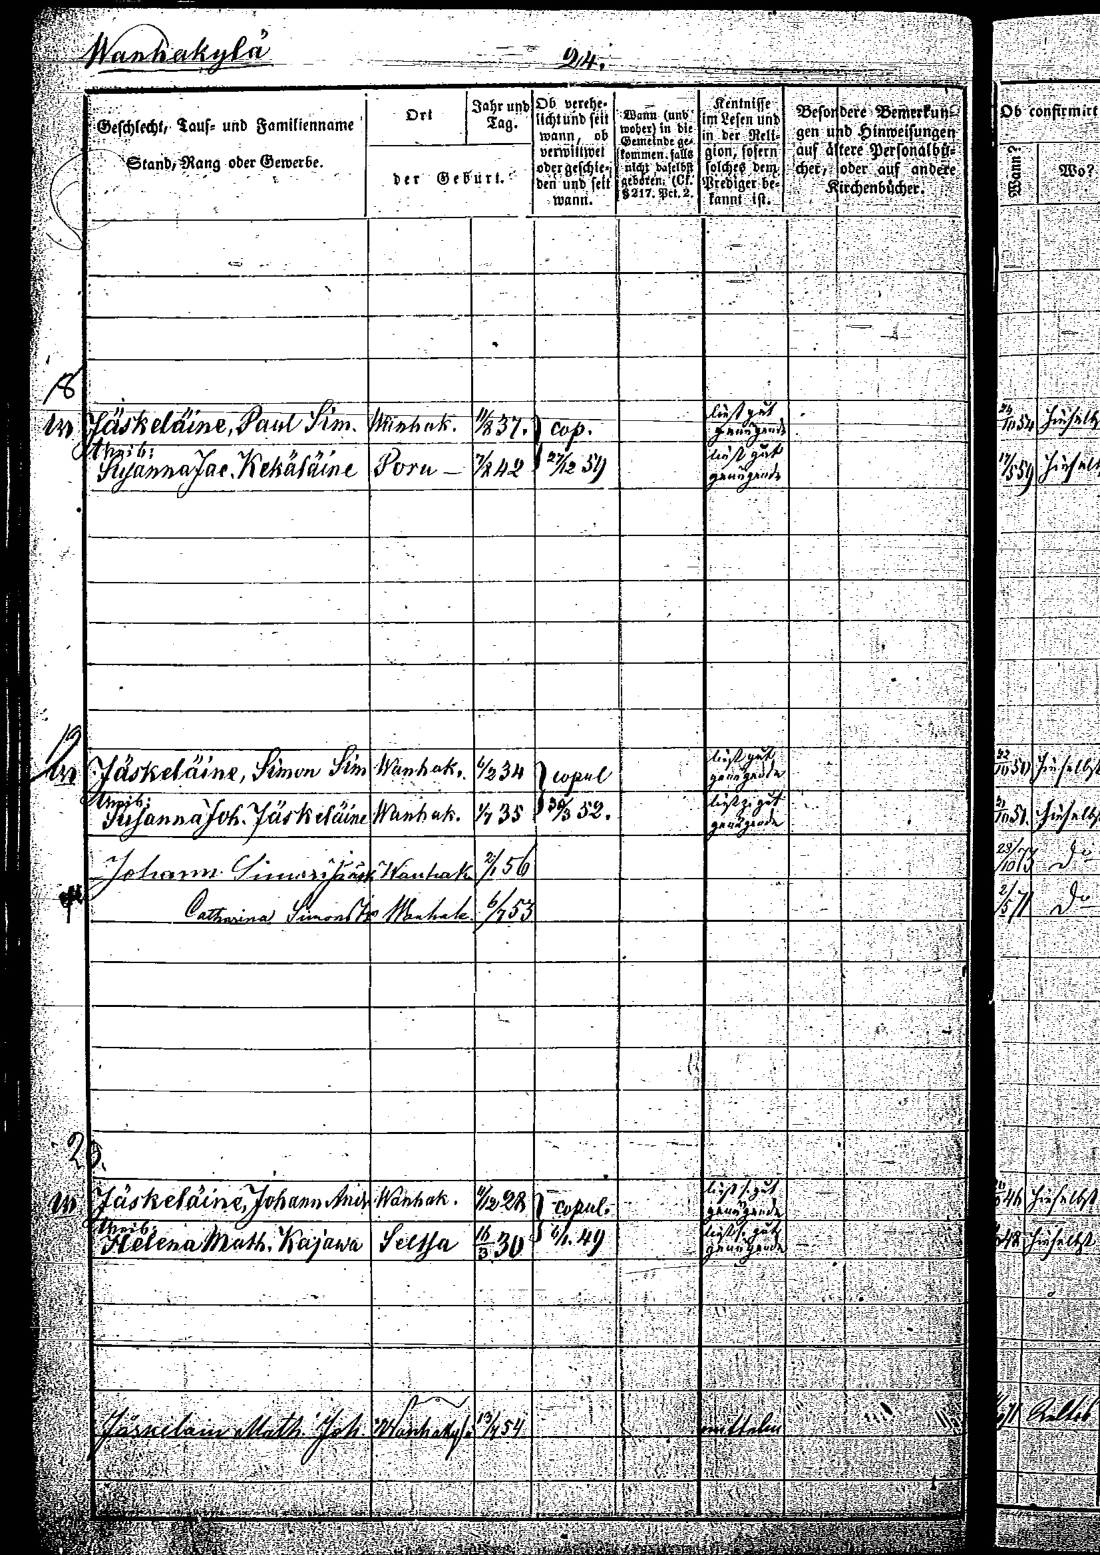 Wanhakylä
24.
Geschlecht, Tauf- und Familienname
Stand, Rang oder Gewerbe.
Ort
der Geburt.
Jahr und
Tag.
Ob verehe-
licht und seit
wann, ob
verwittwet
oder geschie-
den und seit
wann.
Wann (und
woher) in die
Gemeinde ge-
kommen, falls
nicht daselbst
geboren. (Cf.
§ 217. Pct. 2.
Kentnisse
im Lesen und
in der Reli-
gion, sofern
solches dem
Prediger be-
kannt ist.
Besondere Bemerkun-
gen und Hinweisungen
auf ältere Personalbü-
cher, oder auf andere
Kirchenbücher.
Ob confirmirt
Wann?
Wo?
18
Jäskeläine, Paul Sim. Wanhak. 37. cop. liest gut genügende 54 hieselbst
Weib:
Susanna Jac. Kekäläine Poru 7/2 42 27/12 59 liest gut genügende 17/5 59 hieselbst
19
Jäskeläine, Simon Sim Wanhak. 34 copul liest gut genügende 22/10 50 hieselbst
Weib:
Susanna Joh. Jäskeläine Wanhak. 1/7 35 30/3 52. liest gut genügende 51 hieselbst
Johann Simon Wanhak 2/1 56 73 do
Catharina Simons Wanhak 6/7 53 2/5 71 do
20.
Jäskeläine, Johann Andr Wanhak. 28 copul. liest gut genügende 46 hieselbst
Weib:
Helena Math. Kajawa Seltsa 16/3 30 6/1 49 liest gut genügende 48 hieselbst
Jäskelain Math. Joh. Wanhakylä 13/4 54 mittelm 71 Keltto